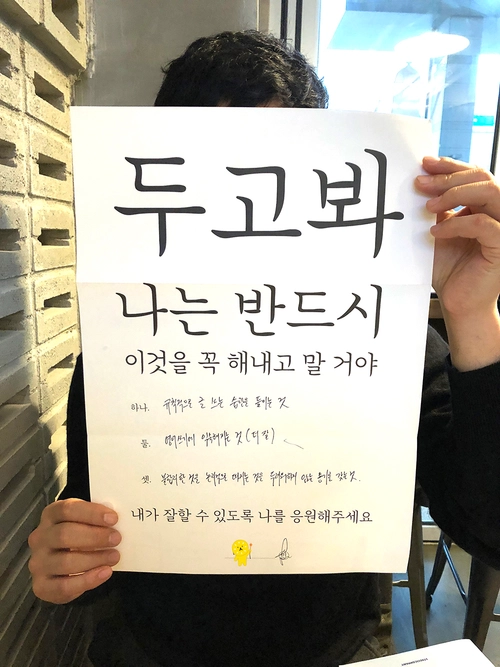 두고봐
나는 반드시
이것을 꼭 해내고 말 거야
하나. 규칙적으로 글 쓰는 습관을 들이는 것
둘. 영어쓰기에 익숙해지는 것 (더 잘)
셋. 것을 것을 두려워하지 않는 용기를 갖는 것.
내가 잘할 수 있도록 나를 응원해주세요